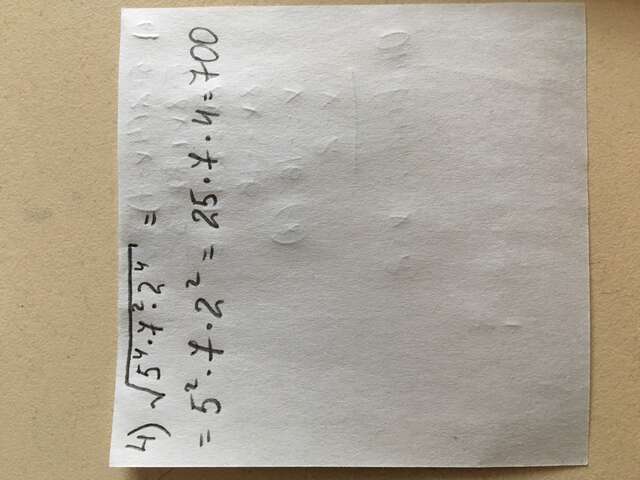 4) √5⁴·7²·2⁴ =
= 5²·7·2² = 25·7·4=700